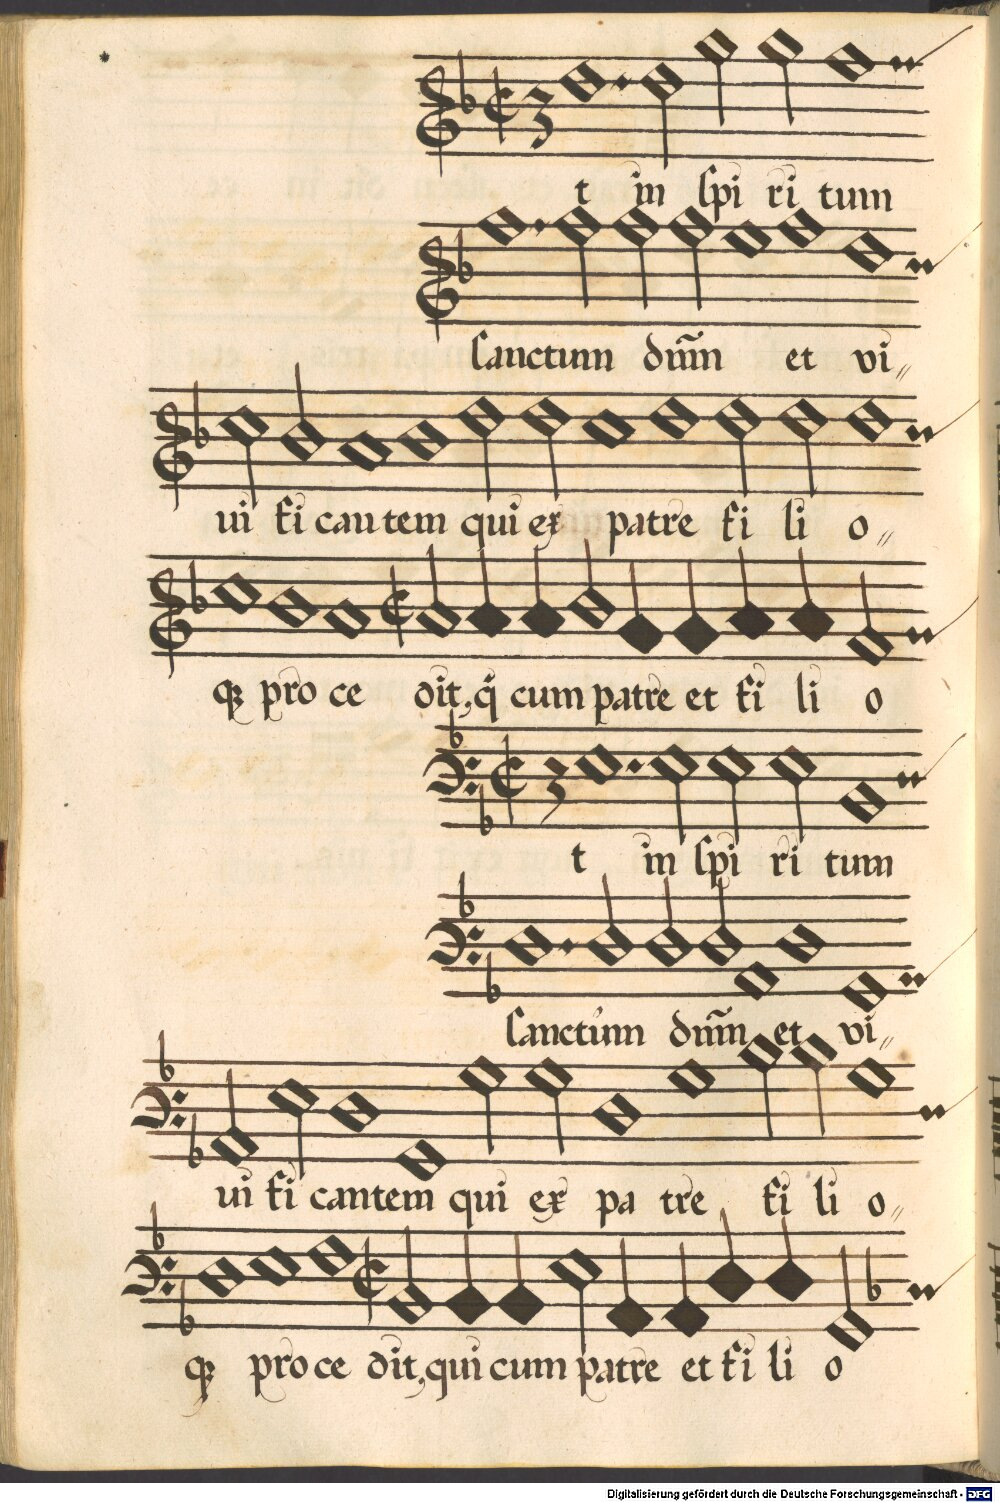 t in spi ri tum
sanctum dnm̃ et vi„
ui fi can tem qui ex patre fi li o„
qꝫ pro ce dit, q̃ cum patre et fi li o
t in spi ri tum
sanctum dnm̃ et vi„
ui fi cantem qui ex pa tre fi li o„
qꝫ pro ce dit, qui cum patre et fi li o
Digitalisierung gefördert durch die Deutsche Forschungsgemeinschaft - DFG